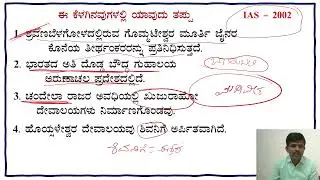 ಈ ಕೆಳಗಿನವುಗಳಲ್ಲಿ ಯಾವುದು ತಪ್ಪು
IAS – 2002
1. ಶ್ರವಣಬೆಳಗೋಳದಲ್ಲಿರುವ ಗೊಮ್ಮಟೇಶ್ವರ ಮೂರ್ತಿ ಜೈನರ
ಕೊನೆಯ ತೀರ್ಥಂಕರರನ್ನು ಪ್ರತಿನಿಧಿಸುತ್ತದೆ.
2. ಭಾರತದ ಅತಿ ದೊಡ್ಡ ಬೌದ್ಧ ಗುಹಾಲಯ
ಅರುಣಾಚಲ ಪ್ರದೇಶದಲ್ಲಿದೆ.
3. ಚಂದೇಲಾ ರಾಜರ ಅವಧಿಯಲ್ಲಿ ಖಜುರಾಹೋ
ದೇವಾಲಯಗಳು ನಿರ್ಮಾಣಗೊಂಡವು.
4. ಹೊಯ್ಸಳೇಶ್ವರ ದೇವಾಲಯವು ಶಿವನಿಗೆ ಅರ್ಪಿತವಾಗಿದೆ.